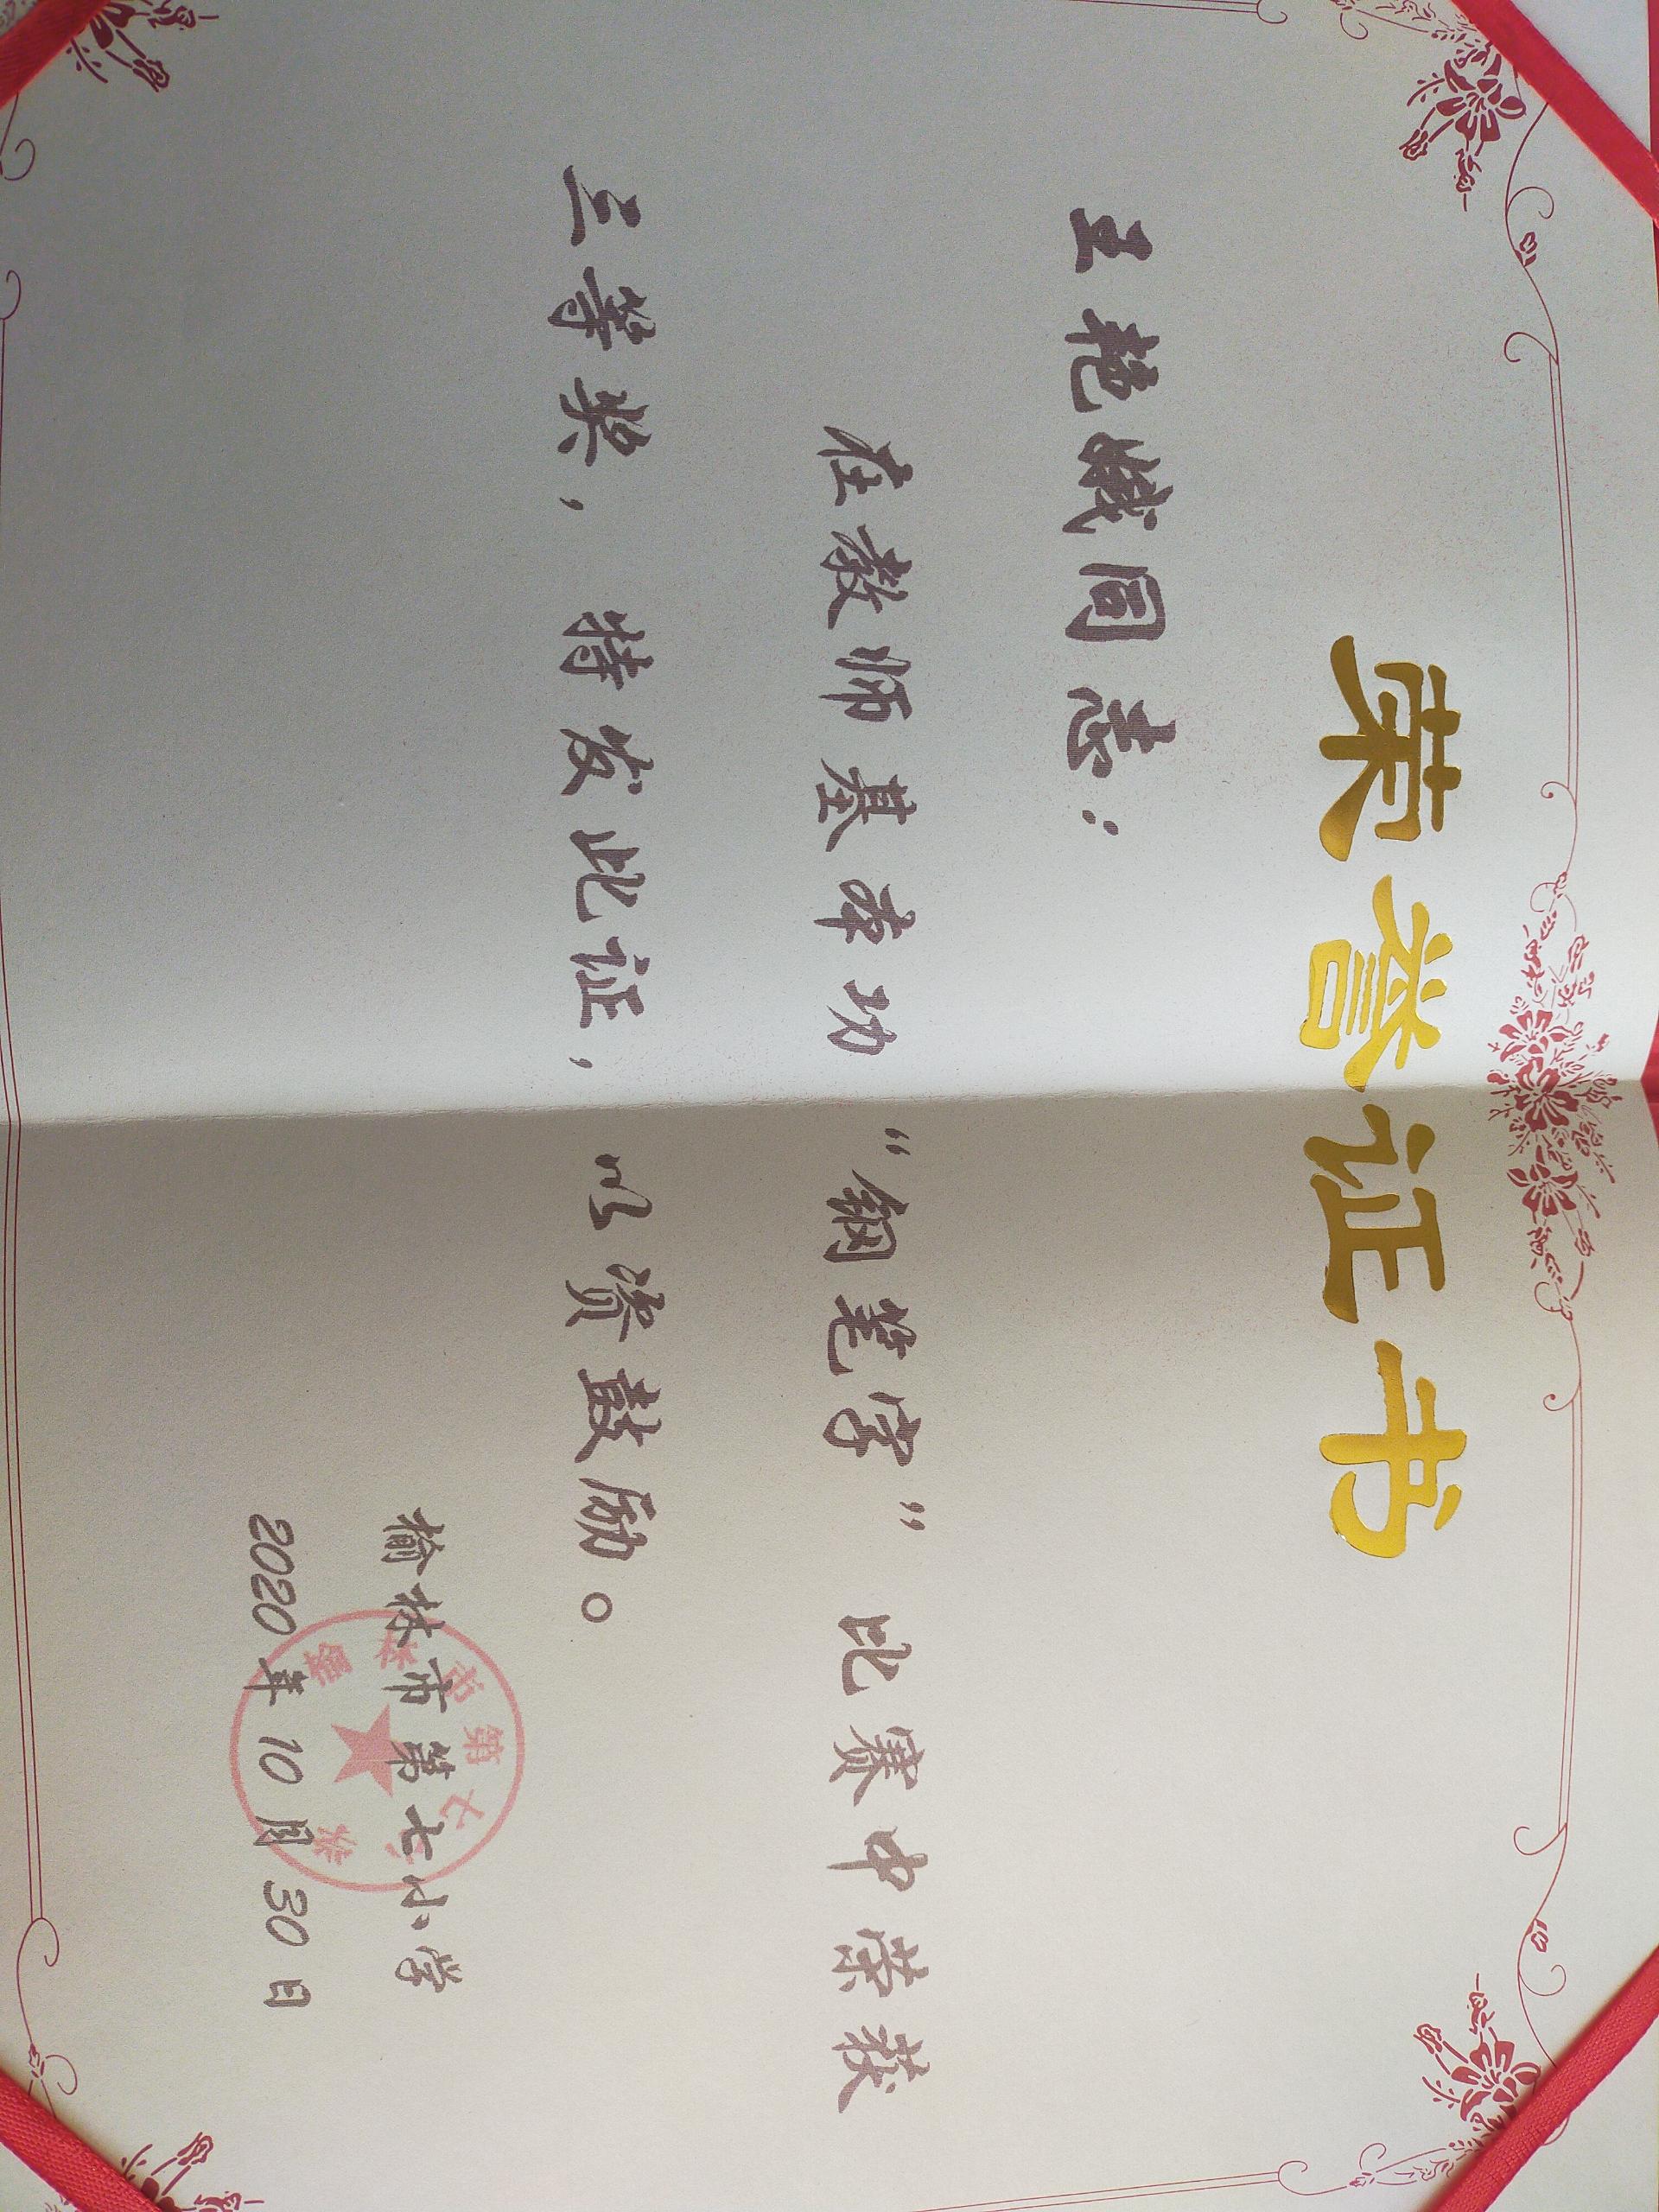 荣誉证书
王艳娥同志：
在教师基本功“钢笔字”比赛中荣获
三等奖，特发此证，以资鼓励。
榆林市第七小学
2020年10月30日